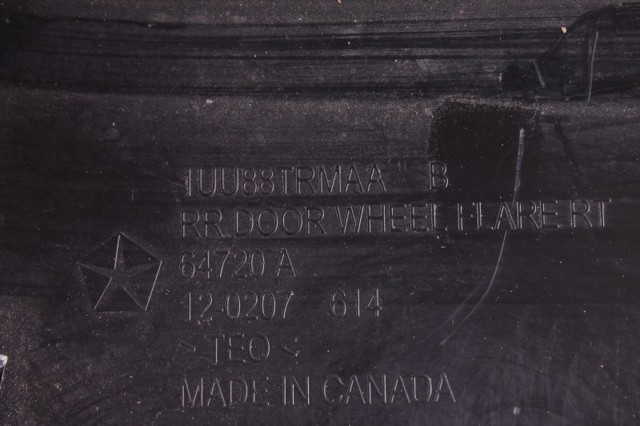 1UU88TRMAA B
RR. DOOR WHEEL FLARE RT
64720 A
12-0207 614
> TEO <
MADE IN CANADA